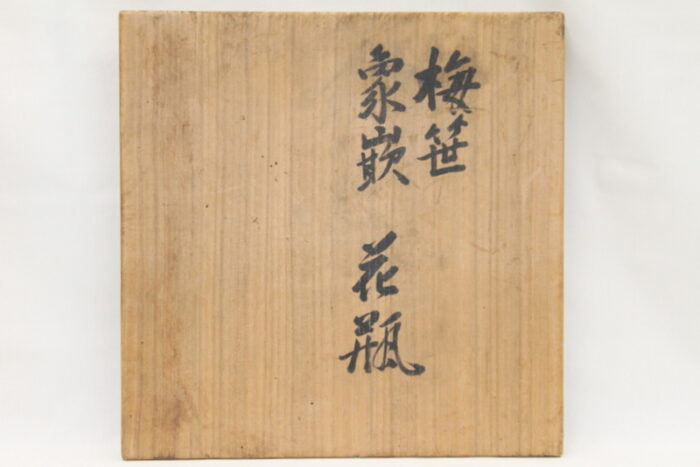 梅笹
象嵌 花瓶